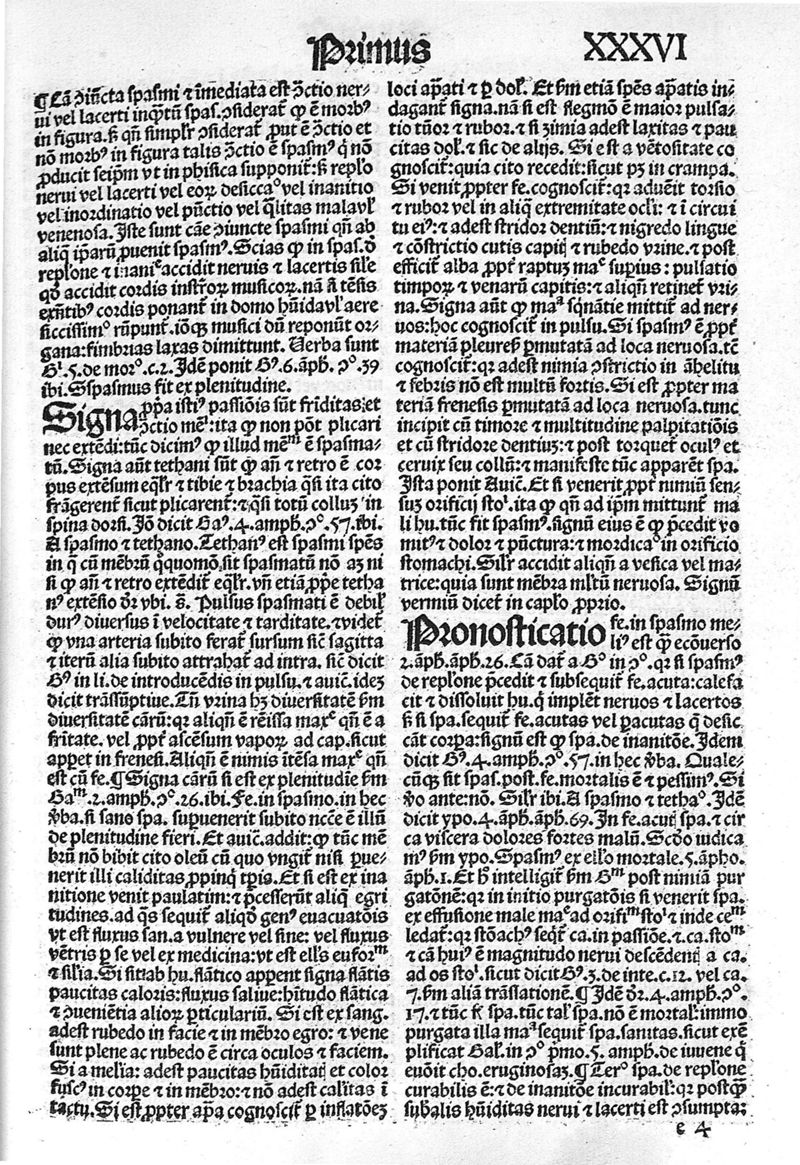 Primus XXXVI
¶Cā ↄiūcta spasmi ⁊ īmediata est ↄ̄ctio ner⸗
ui vel lacerti inqūtū spas. ↄsiderat̄ ꝙ ē morbꝰ
in figura. ß qn̄ simplr̄ ↄsiderat̄ ꝓut ē ↄ̄ctio et
nō morbꝰ in figura talis ↄ̄ctio ē spasmꝰ q̇ nō
ꝓducit seip̄m vt in phisica supponit̄: ß replo
nerui vel lacerti vel eoꝝ desiccaᵒ vel inanitio
vel inordinatio vel pūctio vel q̄litas mala vl̄
venenosa. Iste sunt cāe ↄiuncte spasmi qn̄ ab
aliq̄ ip̄arū ꝓuenit spasmꝰ. Scias ꝙ in spas. d̄
repłone ⁊ inaniᵉ accidit neruis ⁊ lacertis sil̄e
qd̄ accidit cordis instr̄oꝝ musicoꝝ. nā si tēsis
exn̄tibꝰ cordis ponant̄ in domo hūida vl̄ aere
siccissimᵒ rūpunt̄. iō qꝫ musici dū reponūt or⸗
gana: fimbrias laxas dimittunt. Uerba sunt
Gl̓. 5. de morᵒ. c. 2. Idē ponit Gꝰ. 6. aph̄. ↄᵒ. 39
ibi. Sspasmus fit ex plenitudine.
Signa ꝓp̄a istiꝰ passiōis sūt frīditas: et
ↄ̄ctio mēᶦ: ita ꝙ non pōt plicari
nec extēdi: tūc dicimꝰ ꝙ illud mēᵐ ē spasma⸗
tū. Signa aūt tethani sūt ꝙ an̄ ⁊ retro ē cor
pus extēsum eq̄lr̄ ⁊ tibie ⁊ brachia q̄si ita cito
frāgerent̄ sicut plicarent̄: ⁊ q̄si totū colluꝫ in
spina dorsi. Iō dicit Gaꝰ. 4. amph̄. ↄᵒ. 57. ibi.
A spasmo ⁊ tethano. Tethanꝰ est spasmi spēs
in q̄ cū mēbrū q̄quomō sit spasmatū nō aꝫ ni
si ꝙ an̄ ⁊ retro extēdit̄ eq̄lr̄. vn̄ etiā ꝓp̄e tetha
nꝰ extēsio dr̄ vbi. s̄. Pulsus spasmati ē debil̄
durꝰ diuersus ī velocitate ⁊ tarditate. ⁊ videt̄
ꝙ vna arteria subito ferat̄ sursum sic̄ sagitta
⁊ iterū alia subito attrahat̄ ad intra. sic̄ dicit
Gꝰ in li. de introducēdis in pulsu. ⁊ auic̄. ideꝫ
dicit trāssūptiue. Tn̄ vrina hꝫ diuersitatē ẜm
diuersitatē cārū: qꝛ aliqn̄ ē rēissa maxᵉ qn̄ ē a
frītate. vel ꝓpt̄ ascēsum vapoꝝ ad cap. sicut
appet in frenesi. Aliqn̄ ē nimis itēsa maxᵉ qn̄
est cū fe. ¶Signa cārū si est ex plenitudīe ẜm
Gaᵐ. 2. amph̄. ↄᵒ. 26. ibi. Fe. in spasmo. in hec
v̄ba. si sano spa. supuenerit subito nccē ē illū
de plenitudine fieri. Et auic̄. addit: ꝙ tūc mē
brū nō bibit cito oleū cū quo vngit̄ nisi ꝑue⸗
nerit illi caliditas ꝓpinq̄ tꝑis. Et si est ex ina
nitione venit paulatim: ⁊ p̄cesserūt aliq̄ egri
tudines. ad q̄s sequit̄ aliqd̄ genꝰ euacuatōis
vt est fluxus san. a vulnere vel sine: vel fluxus
vētris ꝑ se vel ex medicina: vt est ellꝰs euforᵐ
⁊ sil̄ia. Si sit ab hu. flāticō apꝑent signa flātis
paucitas caloris: fluxus saliue: hītudo flātica
⁊ ↄueniētia alioꝝ ꝑticulariū. Si est ex sang.
adest rubedo in facie ⁊ in mēbro egro: ⁊ vene
sunt plene ac rubedo ē circa oculos ⁊ faciem.
Si a melīa: adest paucitas hūiditatꝭ et color
fuscꝰ in corꝑe ⁊ in mēbro: ⁊ nō adest calitas ī
tactu. Si est ꝓpter ap̄a cognoscit̄ ꝑ inflatōeꝫ
loci ap̄ati ⁊ ꝑ dol̄. Et ẜm etiā spēs ap̄atis in⸗
dagant̄ signa. nā si est flegmō ē maior pulsa⸗
tio tūor ⁊ rubor. ⁊ si ꝫimia adest laxitas ⁊ pau
citas dol̄. ⁊ sic de alijs. Si est a vētositate co
gnoscit̄: quia cito recedit: sicut pꝫ in crampa.
Si venit ꝓpter fe. cognoscit̄: qꝛ aduēit torsio
⁊ rubor vel in aliq̄ extremitate ocl̄i: ⁊ ī circui
tu eiꝰ: ⁊ adest stridor dentiū: ⁊ nigredo lingue
⁊ cōstrictio cutis capitꝭ ⁊ rubedo vrine. ⁊ post
efficit̄ alba ꝓpt̄ raptuꝫ maᵉ supius: pulsatio
timpoꝝ ⁊ venarū capitis: ⁊ aliqn̄ retinet̄ vri⸗
na. Signa aūt ꝙ maᵃ sq̄nātie mittit̄ ad ner⸗
uos: hoc cognoscit̄ in pulsu. Si spasmꝰ ē ꝓpt̄
materiā pleureß ꝑmutatā ad loca neruosa. tc̄
cognoscit̄: qꝛ adest nimia ↄstrictio in āhelitu
⁊ febris nō est multū fortis. Si est ꝓpter ma
teriā frenesis ꝑmutatā ad loca neruosa. tunc
incipit cū timore ⁊ multitudine palpitatiōis
et cū stridore dentiuꝫ: ⁊ post torquet̄ oculꝰ et
ceruix seu collū: ⁊ manifeste tūc apparēt spa.
Ista ponit Auic̄. Et si venerit ꝓpt̄ nimiū sen⸗
suꝫ orificij stoᶦ. ita ꝙ qn̄ ad ip̄m mittunt̄ ma
li hu. tūc fit spasmꝰ. signū eius ē ꝙ p̄cedit vo
mitꝰ ⁊ dolor ⁊ pūctura: ⁊ mordicaᵒ in orificio
stomachi. Sil̄r accidit aliqn̄ a vesica vel ma⸗
trice: quia sunt mēbra ml̄tū neruosa. Signū
vermiū dicet̄ in capl̄o ꝓprio.
Pronosticatio fe. in spasmo me⸗
liꝰ est q̄ ecōuerso
2. aph̄. aph̄. 26. Cā dat̄ a Gᵒ in ↄᵒ. qꝛ si spasmꝰ
de replōne p̄cedit ⁊ subsequit̄ fe. acuta: calefa
cit ⁊ dissoluit hu. q̇ implēt neruos ⁊ lacertos
ß si spa. sequit̄ fe. acutas vel ꝑacutas q̄ desic
cāt corpa: signū est ꝙ spa. de inanitōe. Idem
dicit Gꝰ. 4. amph̄. ↄᵒ. 57. in hec v̄ba. Quale⸗
cūqꝫ sit spas. post. fe. mortalis ē ⁊ pessimꝰ. Si
v̄o ante: nō. Sil̄r ibi. A spasmo ⁊ tethaᵒ. Idē
dicit ypo. 4. aph̄. aph̄. 69. In fe. acutꝭ spa. ⁊ cir
ca viscera dolores fortes malū. Scd̄o iudica
mꝰ ẜm ypo. Spasmꝰ ex ellᵒo mortale. 5. apho.
aph̄. 1. Et h̄ intelligit̄ ẜm Gᵐ post nimiā pur
gatōnē: qꝛ in initio purgatōis si venerit spa.
ex effusione male maᵉ ad orifiᵐ stoᶦ ⁊ inde ceᵐ
ledat̄: qꝛ stōachꝰ seq̄t̄ ca. in passiōe. ⁊. ca. stoᵐ
⁊ cā huiꝰ ē magnitudo nerui descēdentꝭ a ca.
ad os stoᶦ. sicut dicit Gꝰ. 3. de inte. c. 12. vel ca.
7. ẜm aliā trāslationē. ¶Idē dr̄. 4. amph̄. ↄᵒ.
17. ⁊ tūc ß spa. tūc tal̄ spa. nō ē mortal̄. immo
purgata illa maᵃ sequit̄ spa. sanitas. sicut exē
plificat Gal̄. in ↄᵒ p̄mo. 5. amph̄. de iuuene q̇
euōit cho. eruginosaꝫ. ¶Terᵒ spa. de replōne
curabilis ē: ⁊ de inanitōe incurabil̄: qꝛ postq̄ꝫ
sub̄alis hūiditas nerui ⁊ lacerti est ↄsumpta:
e 4